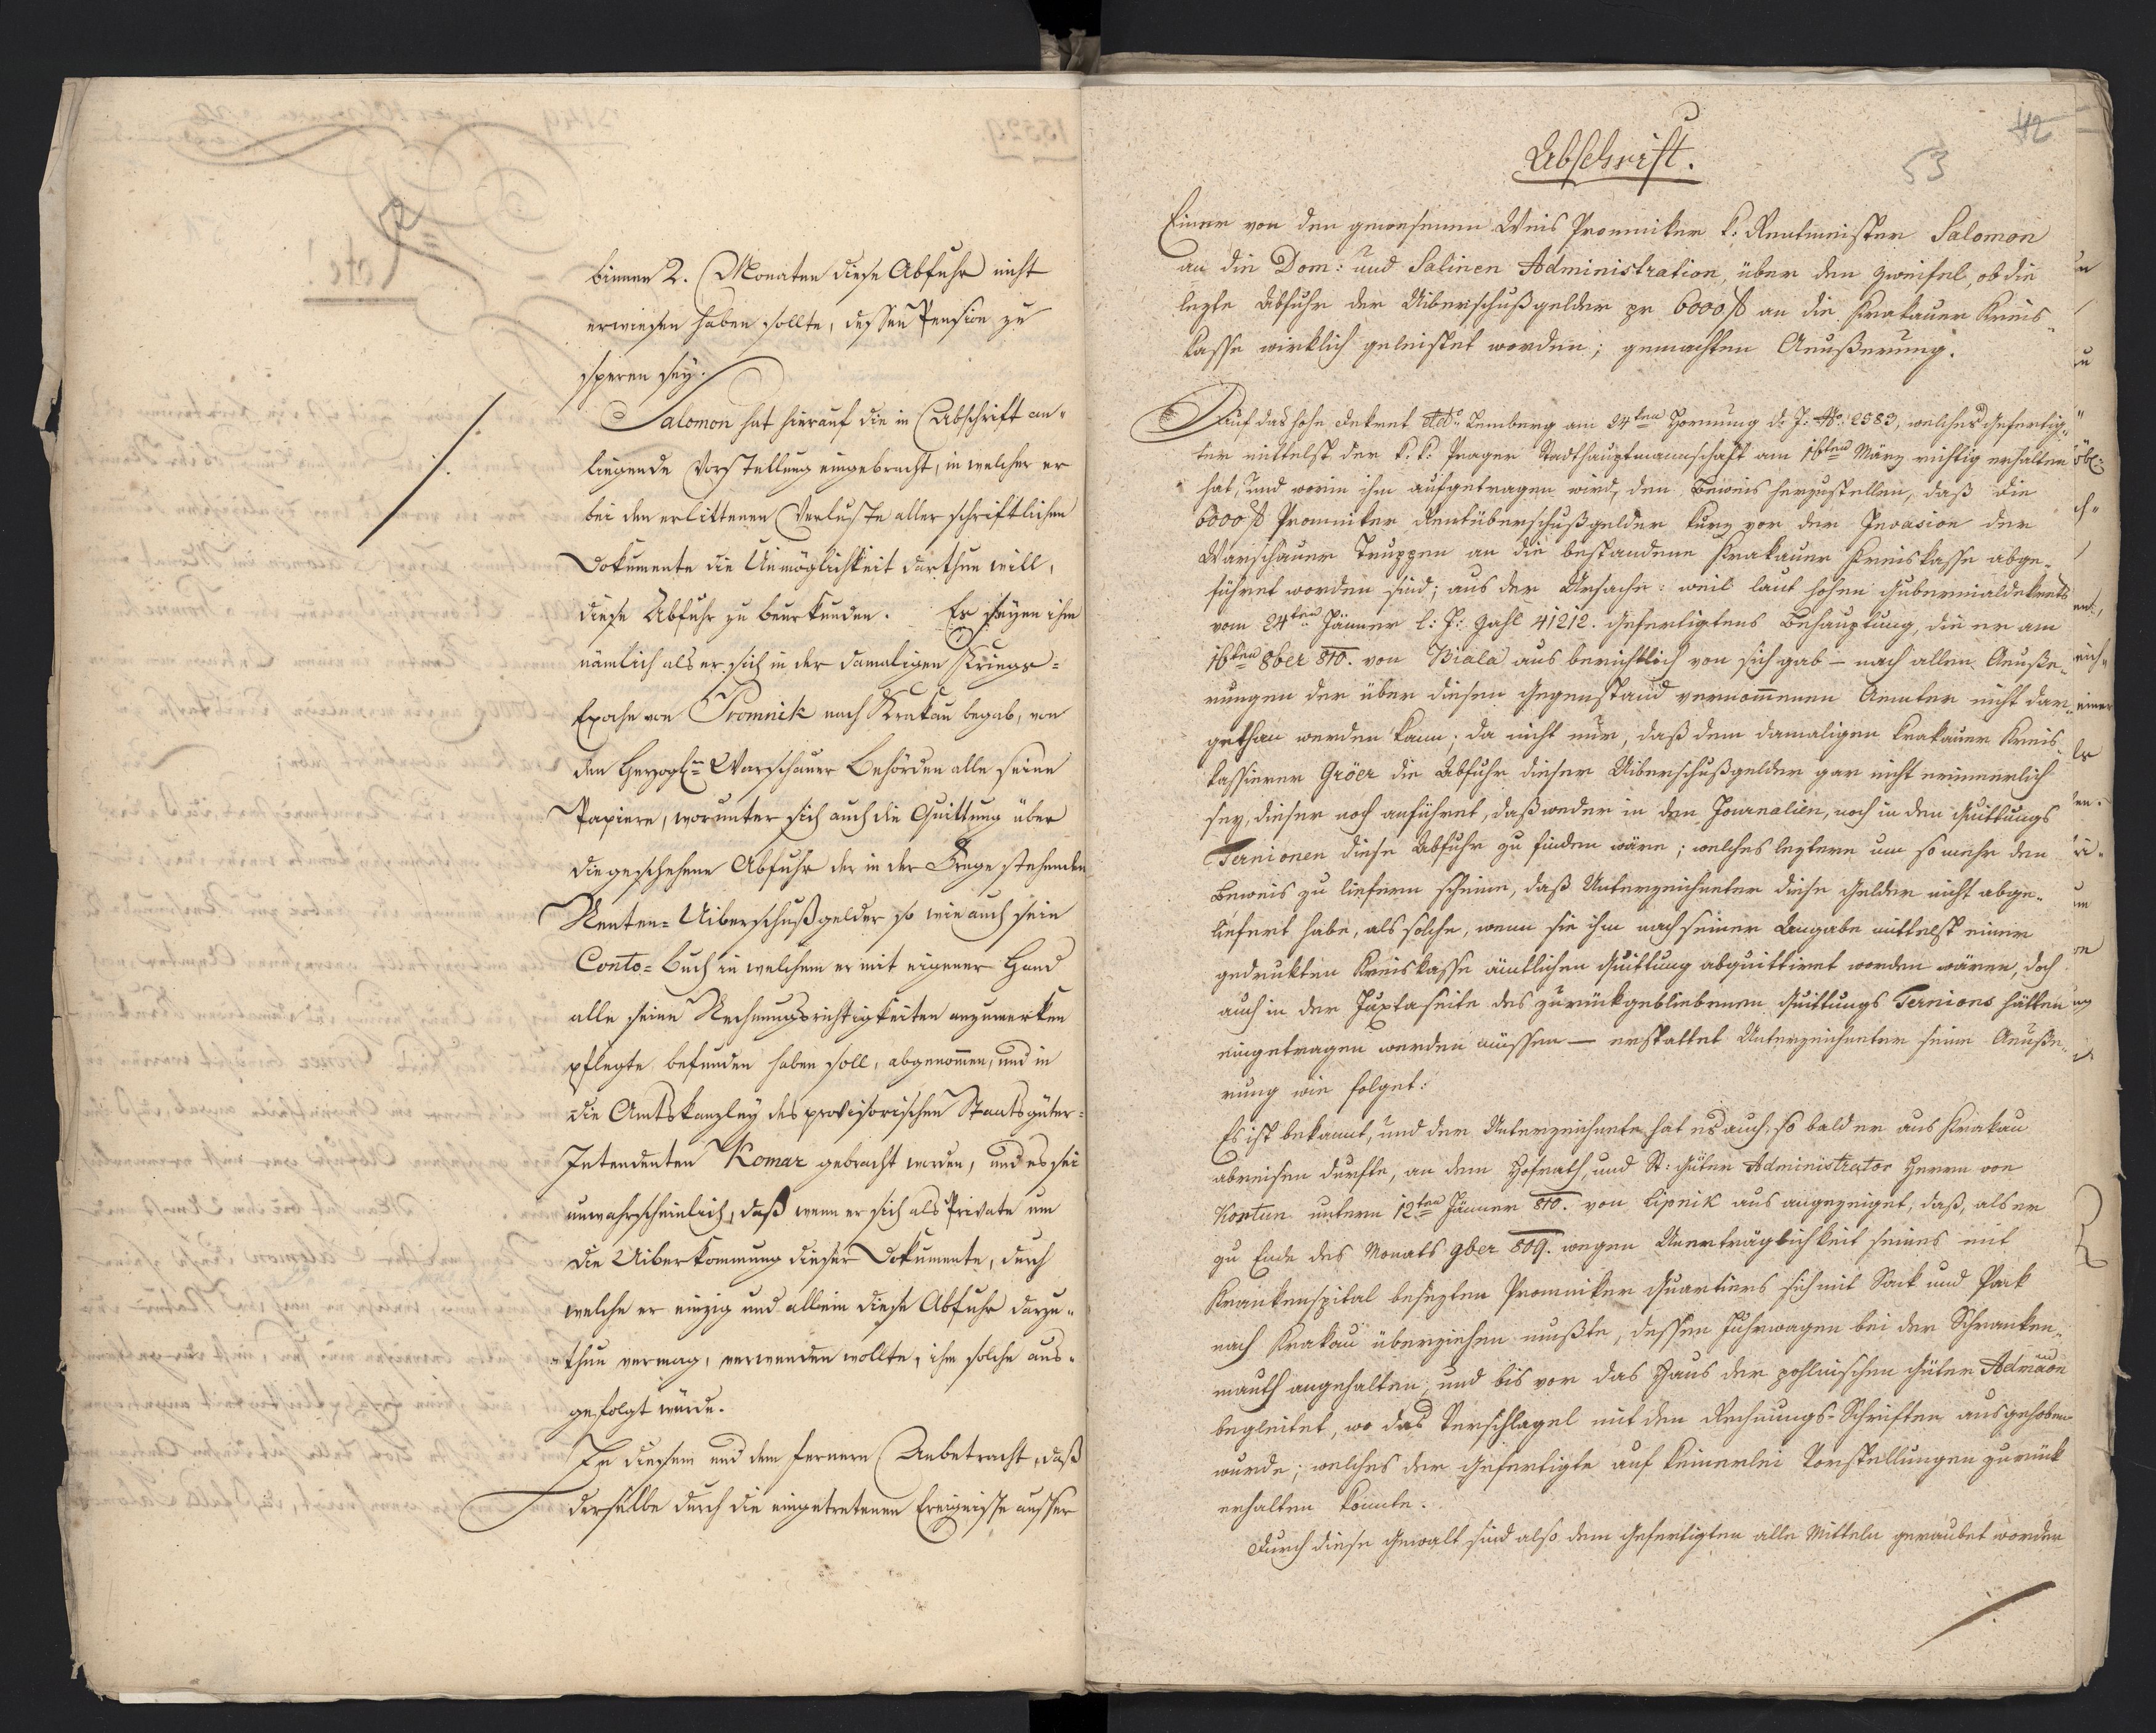 binnen 2. Monaten diese Abfuhr nicht
erwiesen haben sollte, dessen Pension zu
speren sey.
Salomon hat hierauf die in Abschrift an-
liegende Vorstellung eingebracht, in welcher er
bei den erlittenen Verluste aller schriftlichen
Dokumente die Unmöglichkeit darthun will,
diese Abfuhr zu beurkunden. Es seyen ihm
nämlich als er sich in der damaligen Kriegs-
Epoche von Promnik nach Krakau begab, von
den Herzogl:n Warschauer Behörden alle seine
Papiere, worunter sich auch die Quittung über
die geschehene Abfuhr der in der Frage stehenden
Renten-Uiberschußgelder so wie auch sein
Conto-Buch in welchem er mit eigener Hand
alle seine Rechnungsrichtigkeiten anzumerken
pflegte befunden haben soll, abgenom̄en, und in
die Amtskanzley des provisorischen Staatsgüter-
Intendenten Komar gebracht worden, und es sei
unwahrscheinlich, daß wenn er sich als Private um
die Uiberkommung dieser Dokumente, durch
welche er einzig und allein diese Abfuhr darzu-
thun vermag, verwenden wollte, ihm solche aus-
gefolgt würde.
In diesem und dem fernern Anbetracht, daß
derselbe durch die eingetretenen Ereignisse ausser
42
53
Abschrift.
Einer von den gewesenen Promniker k: Rentmeister Salomon
an die Dom: und Salinen Administration, über den Zweifel, ob die
lezte Abfuhr der Uiberschußgelder pr 6000 f an die Krakauer Kreis-
kasse wirklich geleistet worden; gemachten Aeußerung.
Auf das hohe Dekret ddo. Lemberg am 24ten Hornung d: J: No. 2583, welches Gefertig-
ter mittelst der k: k: Prager Stadthauptmannschaft am 16ten März richtig erhalten
hat, und worin ihm aufgetragen wird, den Beweis herzustellen, daß die
6000 f Promniker Rentüberschußgelder kurz vor der Invasion der
Warschauer Truppen an die bestandene Krakauer Kreiskasse abge-
führet worden sind; aus der Ursache: weil laut hohen Gubernialdekrets
vom 24ten Jänner l: J: Zahl 41212. Gefertigtens Behauptung, die er am
16ten 8ber 810. von Biala aus berichtlich von sich gab – nach allen Aeuße-
rungen der über diesen Gegenstand vernom̄enen Aemter nicht dar-
gethan werden kann; da nicht nur, daß dem damaligen Krakauer Kreis-
kassierer Gröer die Abfuhr dieser Uiberschußgelder gar nicht erinnerlich
sey, dieser noch anführet, daß weder in den Journalien, noch in den Quittungs
Ternionen diese Abfuhr zu finden wäre; welches leztere um so mehr den
Beweis zu liefern scheine, daß Unterzeichneter diese Gelder nicht abge-
liefert habe, als solche, wenn sie ihm nach seiner Angabe mittelst einer
gedrukten Kreiskasse ämtlichen Quittung abquittiret worden wären, doch
auch in der Juxtaseite des zurückgebliebenen Quittungs Ternions hätten
eingetragen werden müssen – erstattet Unterzeichneter seine Aeuße-
rung wie folget:
Es ist bekannt, und der Unterzeichnete hat es auch, so bald er aus Krakau
abreisen durfte, an dem Hofrath, und St: Güter Administrator Herrn von
Kortun unterm 12ten Jänner 810. von Lipnik aus angezeiget; daß, als er
zu Ende des Monats 9ber 809. wegen Unerträglichkeit seines mit
Krankenspital besezten Promniker Quartiers sich mit Sack und Pack
nach Krakau überziehen mußte, dessen Fuhrwagen bei der Schranken-
mauth angehalten, und bis vor das Haus der pohlnischen Güter Admāon
begleitet, wo das Verschlagel mit den Rechnungs-Schriften ausgehoben
wurde; welches der Gefertigte auf keinerlei Vorstellungen zurück
erhalten konnte.
Durch diese Gewalt sind also dem Gefertigten alle Mitteln geraubet worden